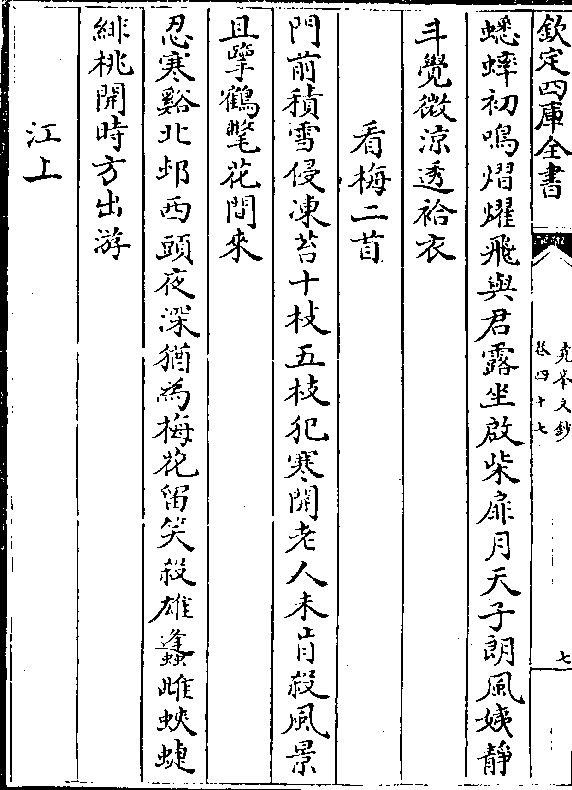 欽定四庫全書
堯峯文鈔
卷四十七
七
蟋蟀初鳴熠燿飛與君露坐啟柴扉月天子朗風姨靜
斗覺微涼透袷衣
看梅二首
門前積雪侵凍苔十枝五枝犯寒開老人未肯殺風景
且擘鶴氅花間來
忍寒谿北邨西頭夜深猶為梅花留笑殺雄蠭雌蛺蜨
緋桃開時方出游
江上